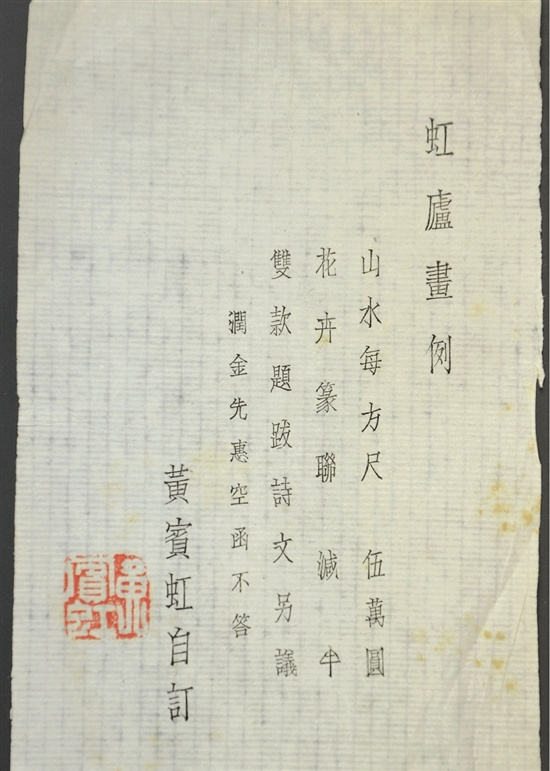 虹廬畫例
山水每方尺 伍萬圓
花卉篆聯 減半
雙款題跋詩文另議
潤金先惠空函不答
黃賓虹自訂
黃賓虹